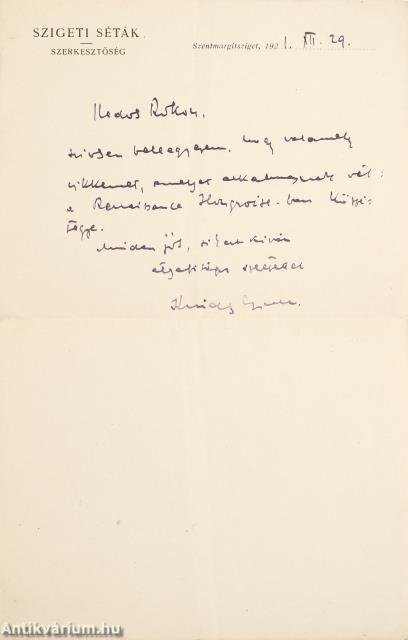 SZIGETI SÉTÁK
SZERKESZTŐSÉG
Szentmargitsziget, 1921. XII. 29.
Kedves
szivesen beleegyezem, hogy valamely
cikkemet, amelyet alkalmasnak vél:
a Renaissance Hongroise-ban közzé-
tegye.
Minden jót, sikert kíván
szeretettel
Krúdy Gyula.
Antikvárium.hu